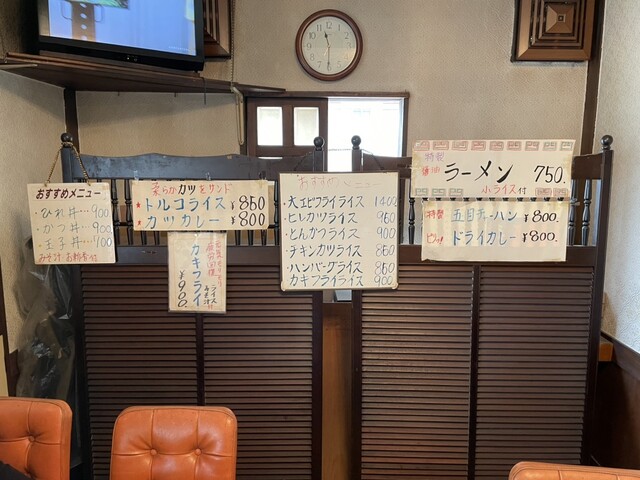 おすすめメニュー
・ひれ丼…900
・かつ丼…900
・玉子丼…700
みそ汁・お新香付
柔らかカツをサンド
★トルコライス ¥850
★カツカレー ¥800
カキフライ
ライス
みそ汁付
¥900
おすすめメニュー
大エビフライライス 1400
ヒレカツライス 950
とんかつライス 900
チキンカツライス 850
ハンバーグライス 850
カキフライライス 900
特製
醤油
ラーメン 750.
小ライス付
特製 五目チャーハン ¥800.
ドライカレー ¥800.